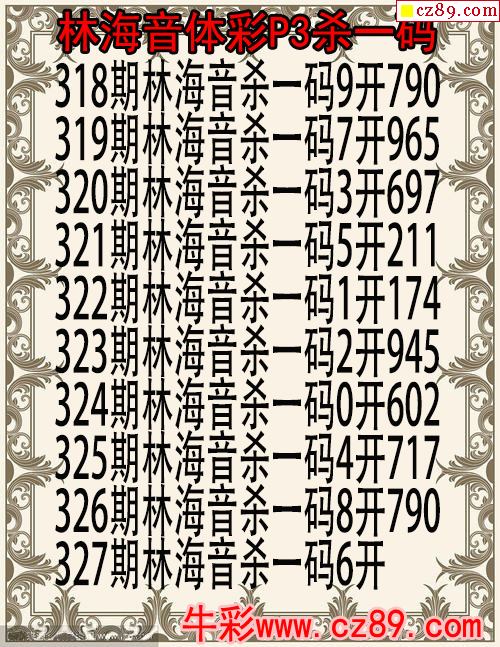 cz89.com
林海音体彩P3杀一码
318期林海音杀一码9开790
319期林海音杀一码7开965
320期林海音杀一码3开697
321期林海音杀一码5开211
322期林海音杀一码1开174
323期林海音杀一码2开945
324期林海音杀一码0开602
325期林海音杀一码4开717
326期林海音杀一码8开790
327期林海音杀一码6开
牛彩www.cz89.com